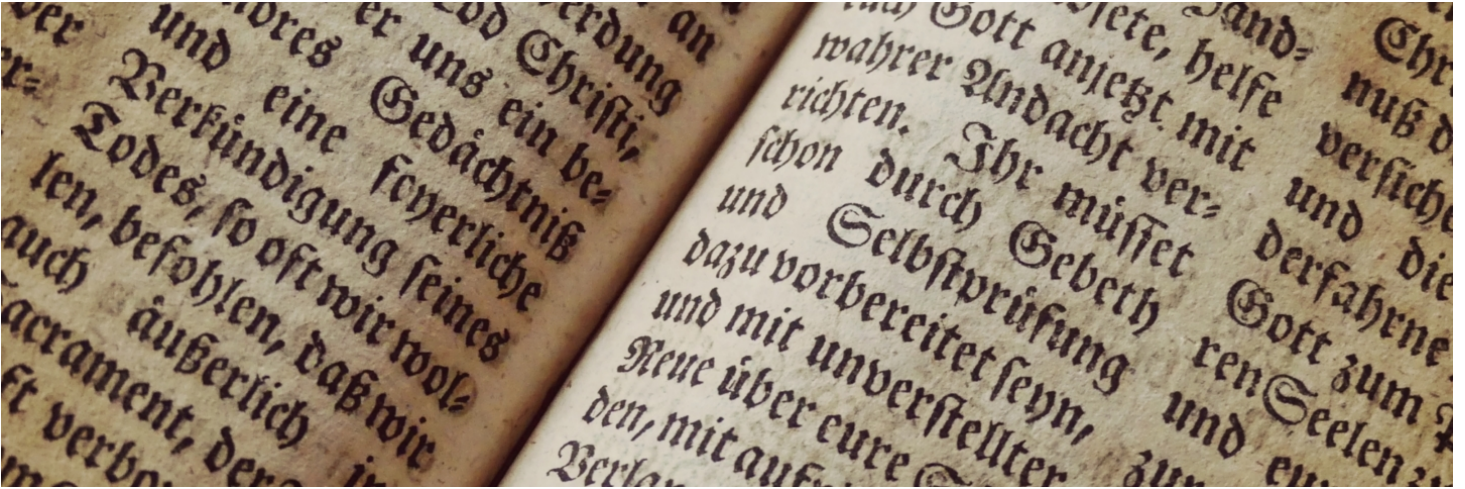 an
Tod Christi,
er uns ein be-
Gedächtniß
und eine feyerliche
Verkündigung seines
Todes, so oft wir wol-
len, befohlen, daß wir
auch äußerlich
verbo
helfe
Gott anjetzt mit
wahrer Andacht ver-
richten. Ihr müsset
schon durch Gebeth
und Selbstprüfung
dazu vorbereitet seyn,
und mit unverstellter
Reue über eure
den, mit
Chri
nuß d
versiche
und die
derfahrne
Gott zum
ren Seelen zu
und eu
zur